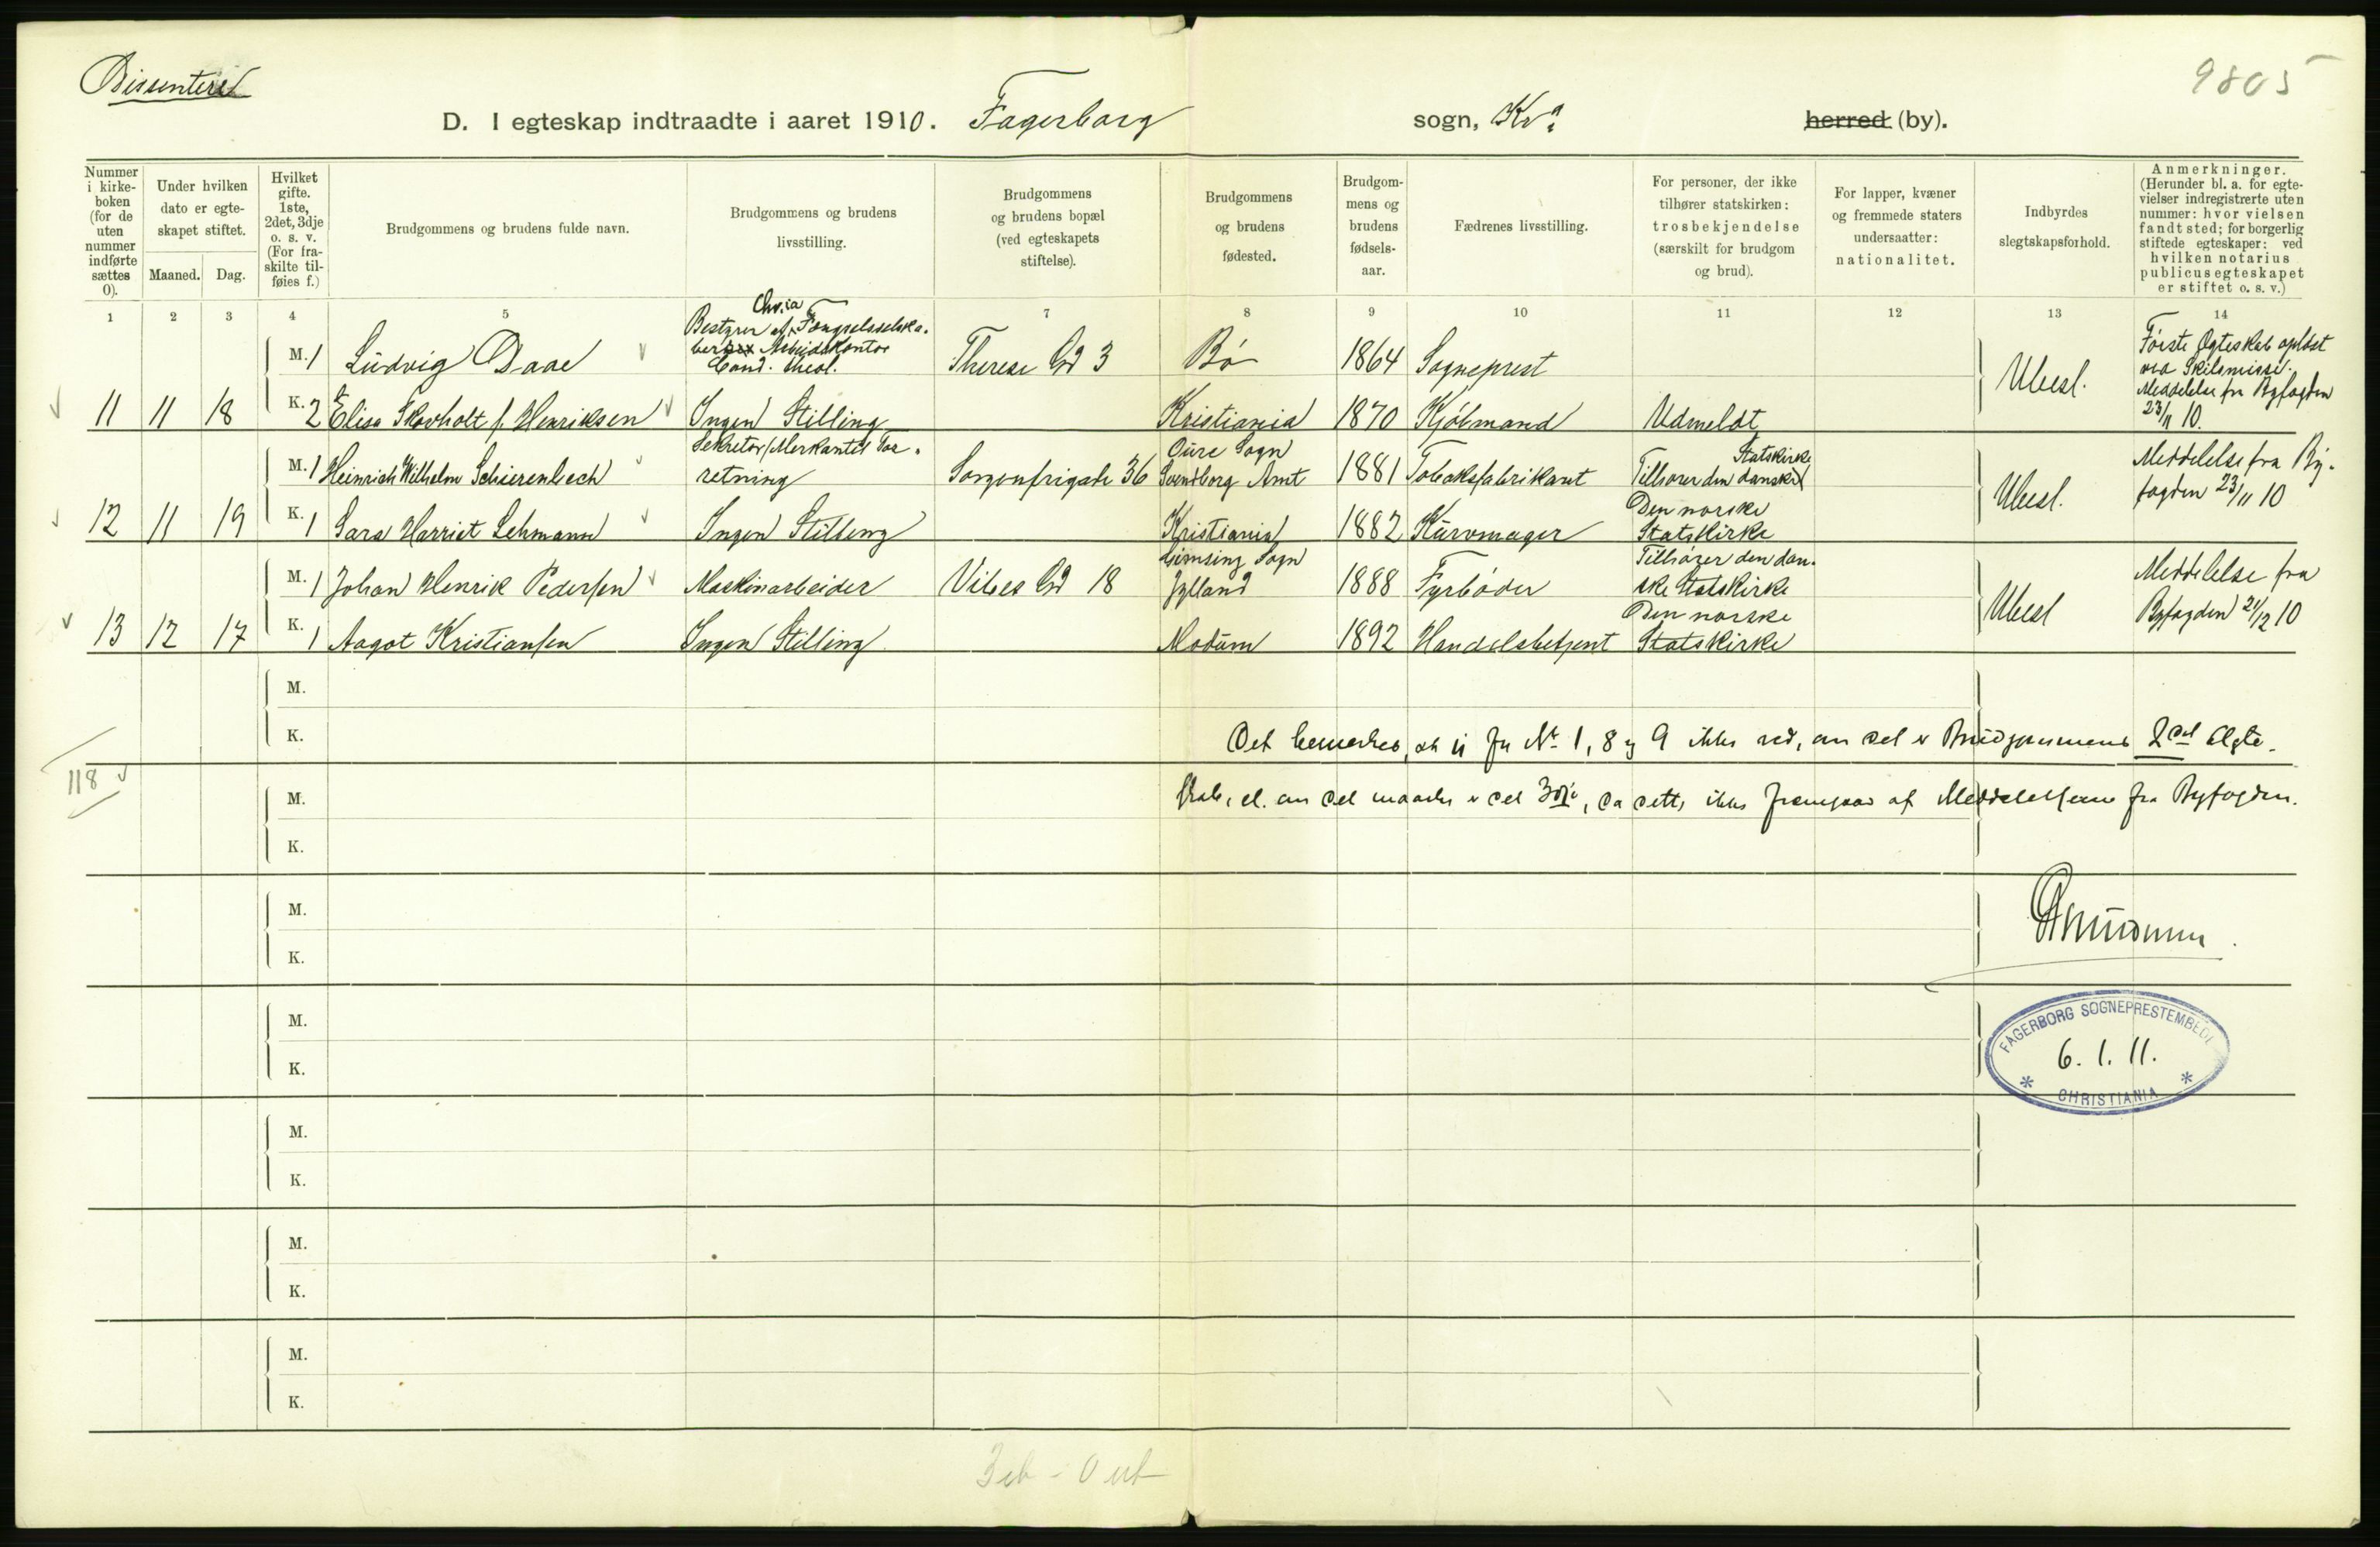 Dissentere
9805
D. I egteskap indtraadte i aaret 1910. Fagerborg sogn, Kra. herred (by).
Nummer i kirkeboken (for de uten nummer indførte sættes 0).
Under hvilken dato er egteskapet stiftet.
Maaned. Dag.
Hvilket gifte. 1ste, 2det, 3dje o. s. v. (For fraskilte tilføies f.)
Brudgommens og brudens fulde navn.
Brudgommens og brudens livsstilling.
Brudgommens og brudens bopæl (ved egteskapets stiftelse).
Brudgommens og brudens fødested.
Brudgommens og brudens fødselsaar.
Fædrenes livsstilling.
For personer, der ikke tilhører statskirken: trosbekjendelse (særskilt for brudgom og brud).
For lapper, kvæner og fremmede staters undersaatter: nationalitet.
Indbyrdes slegtskapsforhold.
Anmerkninger. (Herunder bl. a. for egtevielser indregistrerte uten nummer: hvor vielsen fandt sted; for borgerlig stiftede egteskaper: ved hvilken notarius publicus egteskapet er stiftet o. s. v.)
1 2 3 4 5 6 7 8 9 10 11 12 13 14
M. 1 Ludvig Daae Bestyrer af Chr.ia Fængselsselskabers Arbeidskontor Cand. theol. Therese Gd 3 Bø 1864 Sogneprest
11 11 18 K. 2 Elisa Skovholt f. Henriksen Ingen Stilling Kristiania 1870 Kjøbmand Udmeldt Ubesl. Første Ægteskab opløst ved Skilsmisse. Meddelelse fra Byfogden 23/11 10.
M. 1 Heinrich Wilhelm Schierenbech Sekretær/Merkantil Forretning Sorgenfrigade 36 Oure Sogn Svendborg Amt 1881 Tobaksfabrikant Tilhører den danske Statskirke
12 11 19 K. 1 Sara Harriet Lehmann Ingen Stilling Kristiania 1882 Kurvmager Den norske Statskirke Ubesl. Meddelelse fra Byfogden 23/11 10
M. 1 Johan Henrik Pedersen Maskinarbeider Vibes Gd 18 Sogn Jylland 1888 Fyrbøder Tilhører den danske Statskirke
13 12 17 K. 1 Aagot Kristiansen Ingen Stilling Modum 1892 Handelsbetjent Den norske Statskirke Ubesl Meddelelse fra Byfogden 21/12 10
M.
K.
Det bemerkes, at vi for No 1, 8 og 9 ikke ved, om det er Brudgommens 2det Ægte-
118
M.
skab, el. om det maaske er det 3dje, da dette ikke fremgaar af Meddelelserne fra Byfogden.
K.
M.
K.
M.
K.
FAGERBORG SOGNEPRESTEMBEDE
6. 1. 11.
* CHRISTIANIA *
M.
K.
M.
K.
M.
K.